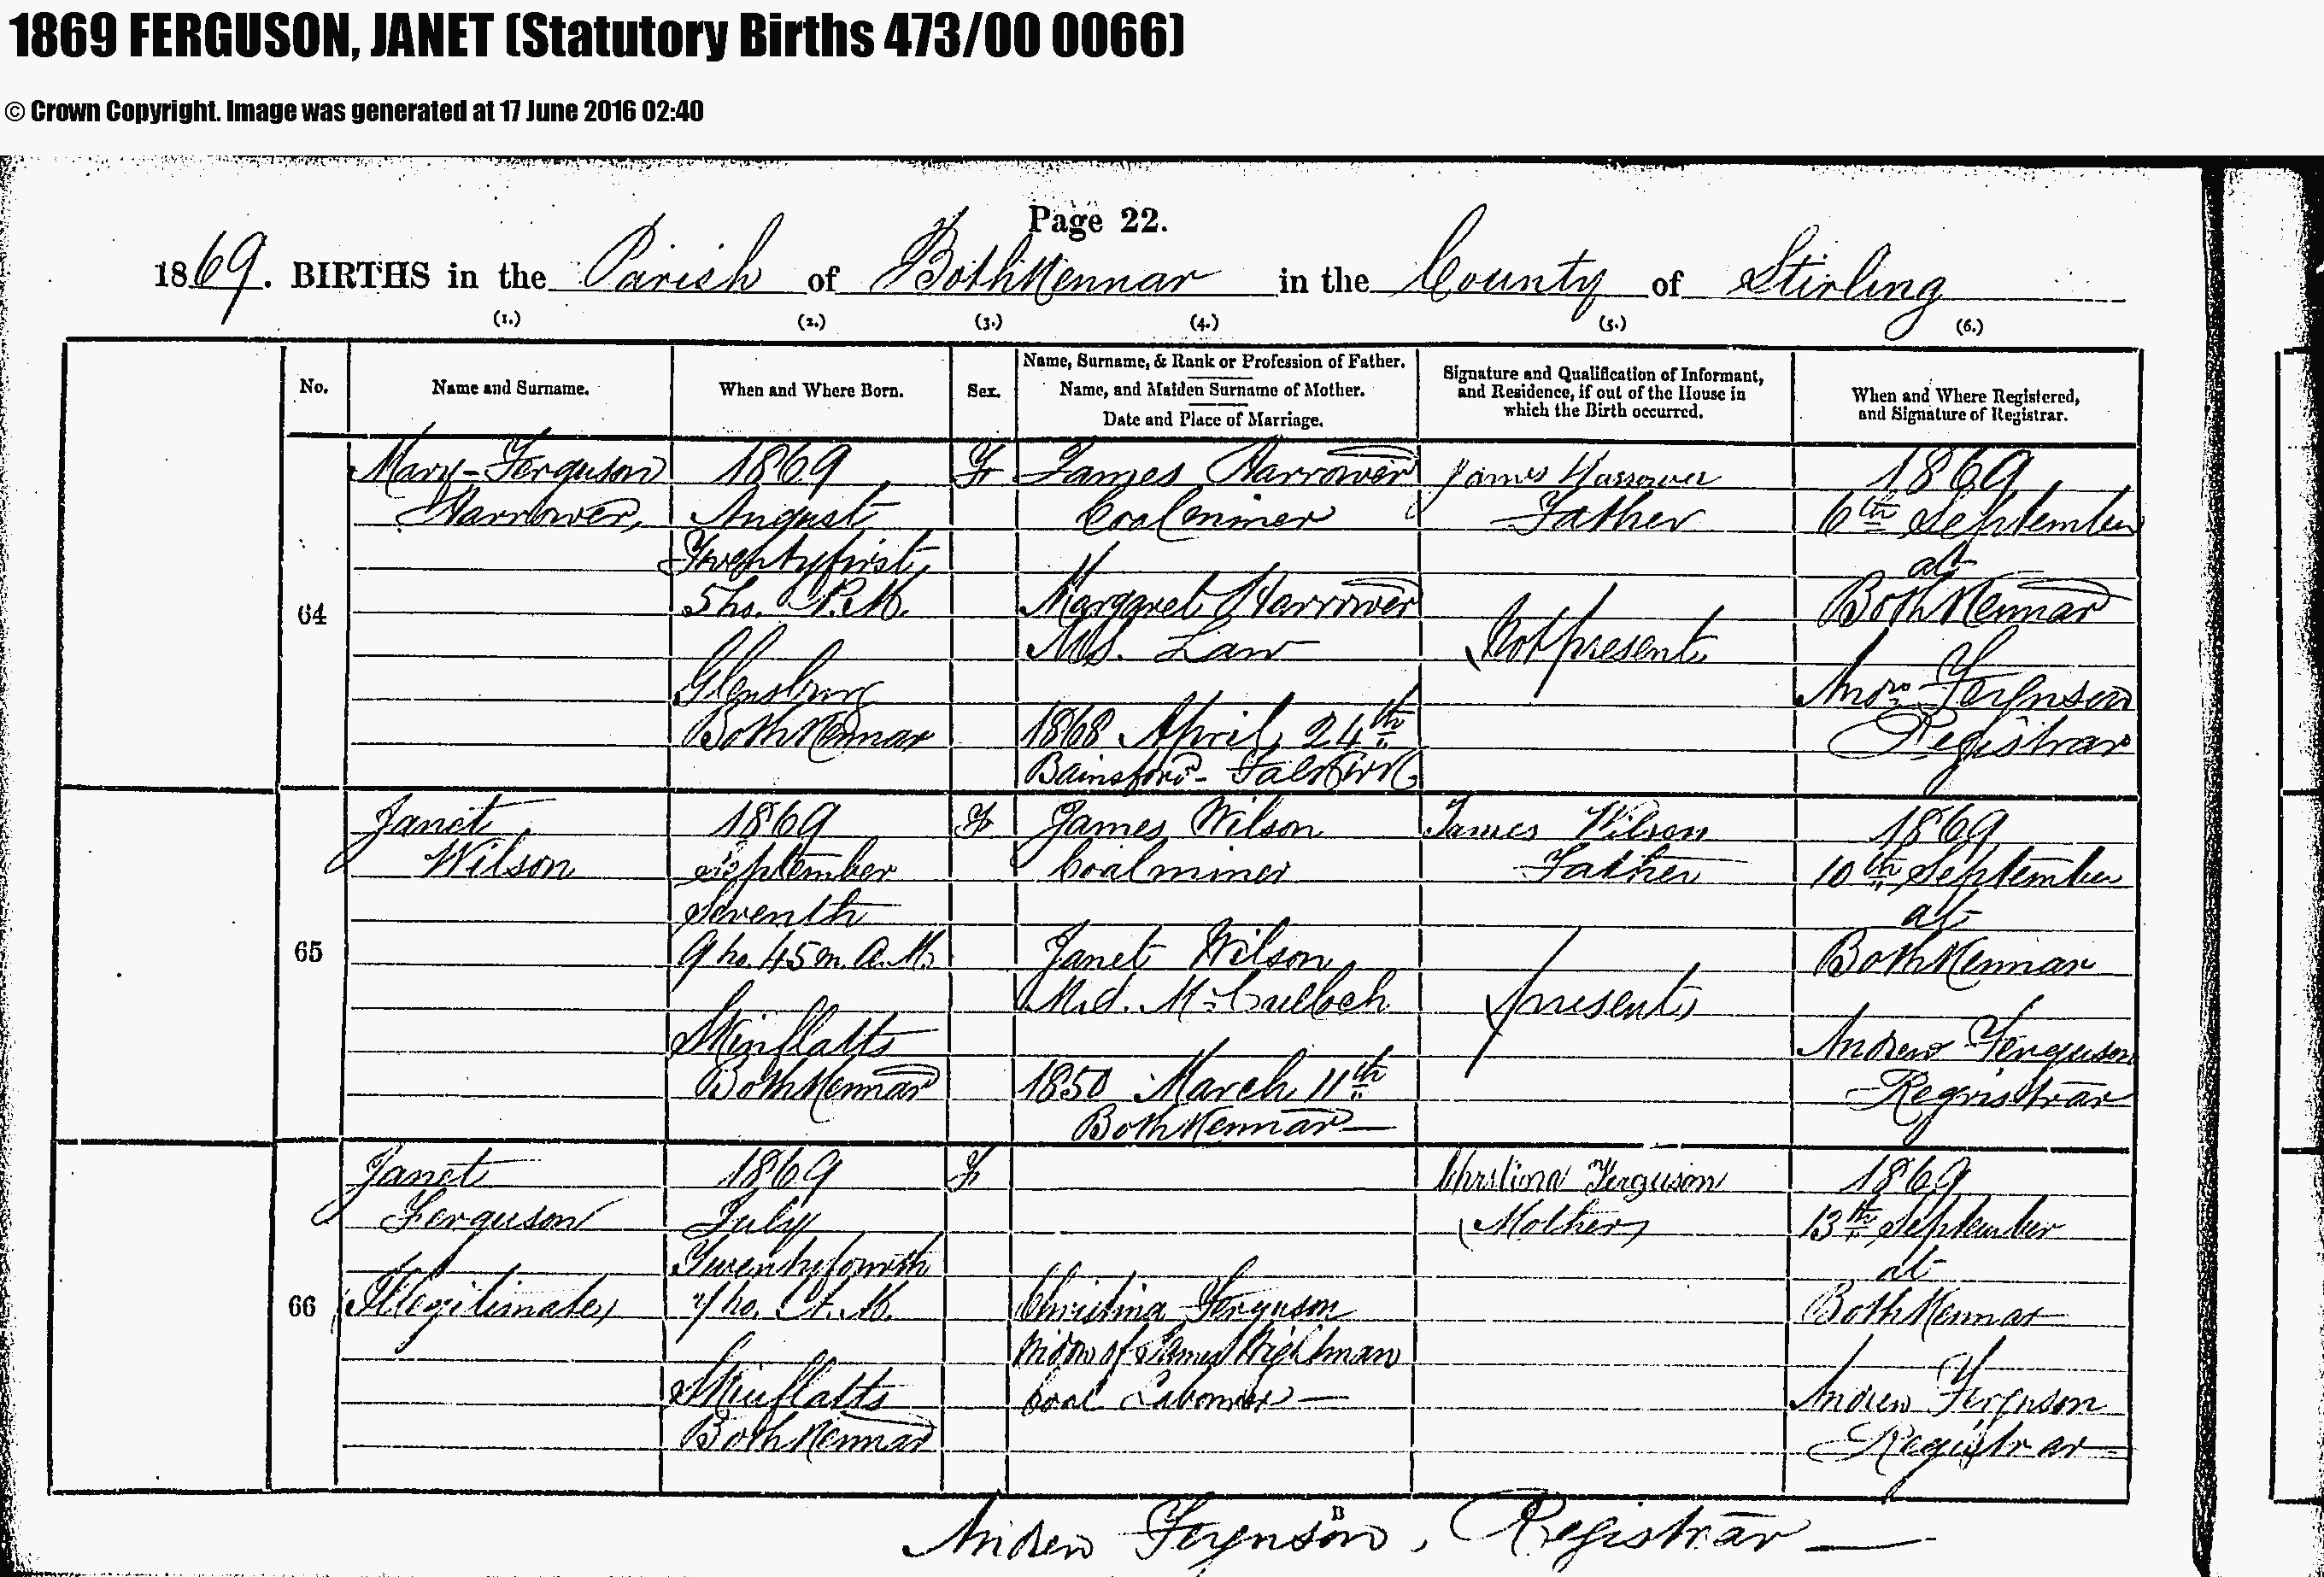 1869 FERGUSON, JANET (Statutory Births 473/00 0066)
© Crown Copyright. Image was generated at 17 June 2016 02:40
Page 22.
1869. BIRTHS in the Parish of Bothkennar in the County of Stirling
(1.) (2.) (3.) (4.) (5.) (6.)
No.
Name and Surname.
When and Where Born.
Sex.
Name, Surname, & Rank or Profession of Father.
Name, and Maiden Surname of Mother.
Date and Place of Marriage.
Signature and Qualification of Informant,
and Residence, if out of the House in
which the Birth occurred.
When and Where Registered,
and Signature of Registrar.
64
Mary-Ferguson
Harrower,
1869
August
Twentyfirst,
5ho. P.M.
Glensburg
Bothkennar
F
James Harrower
Coalminer
Margaret Harrower
M.S. Law
1868 April, 24th
Bainsford-Falkirk
James Harrower
Father
Not present
1869
6th September
at
Bothkennar
Andw. Ferguson
Registrar
65
Janet
Wilson
1869
September
Seventh
9 ho. 45 m. A.M.
Skinflatts
Bothkennar
F
James Wilson
Coalminer
Janet Wilson
M.S. McCulloch
1850 March 11th
Bothkennar
James Wilson
Father
present
1869
10th September
at
Bothkennar
Andrew Ferguson
Registrar
66
Janet
Ferguson
Illegitimate
1869
July
Twentyfourth
7 ho. A.M.
Skinflatts
Bothkennar
F
Christina Ferguson
Widow of James Wightman
Coal Labourer
Christina Ferguson
Mother
1869
13th September
at
Bothkennar
Andrew Ferguson
Registrar
Andrew Ferguson, Registrar